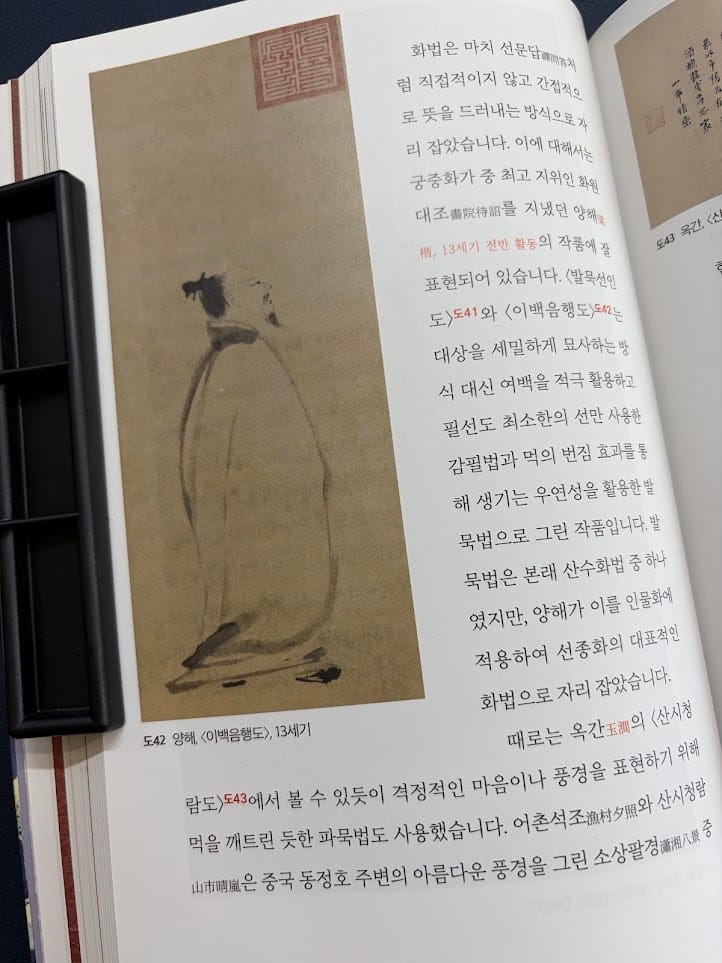 화법은 마치 선문답禪問答처
럼 직접적이지 않고 간접적으
로 뜻을 드러내는 방식으로 자
리 잡았습니다. 이에 대해서는
궁중화가 중 최고 지위인 화원
대조畵院待詔를 지냈던 양해梁
楷, 13세기 전반 활동의 작품에 잘
표현되어 있습니다. 〈발묵선인
도〉도41와 〈이백음행도〉도42는
대상을 세밀하게 묘사하는 방
식 대신 여백을 적극 활용하고
필선도 최소한의 선만 사용한
감필법과 먹의 번짐 효과를 통
해 생기는 우연성을 활용한 발
묵법으로 그린 작품입니다. 발
묵법은 본래 산수화법 중 하나
였지만, 양해가 이를 인물화에
적용하여 선종화의 대표적인
화법으로 자리 잡았습니다.
때로는 옥간玉澗의 〈산시청
람도〉도43에서 볼 수 있듯이 격정적인 마음이나 풍경을 표현하기 위해
먹을 깨트린 듯한 파묵법도 사용했습니다. 어촌석조漁村夕照와 산시청람
山市晴嵐은 중국 동정호 주변의 아름다운 풍경을 그린 소상팔경瀟湘八景 중
도42 양해, 〈이백음행도〉, 13세기
도43 옥간, 〈산